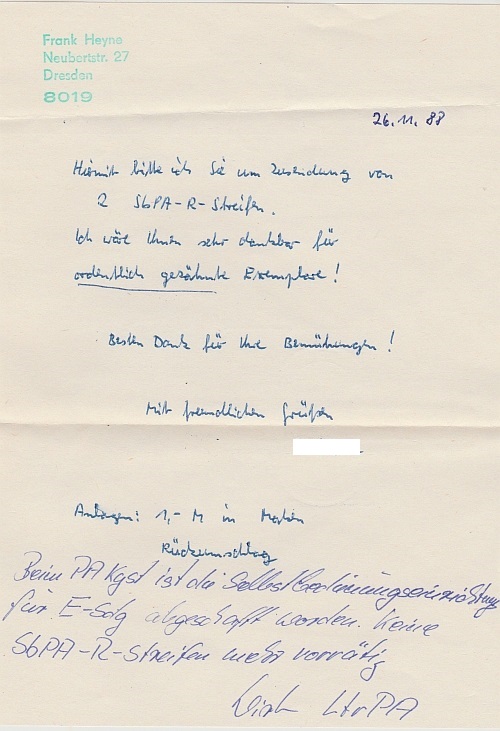 Frank Heyne
Neubertstr. 27
Dresden
8019
26.11.88
Hiermit bitte ich Sie um Zusendung von
2 SbPA-R-Streifen.
Ich wäre Ihnen sehr dankbar für
ordentlich gezähnte Exemplare!
Besten Dank für Ihre Bemühungen!
Mit freundlichen Grüßen
Anlagen: 1,- M in Marken
Rückumschlag
Beim PA Kgst ist die Selbstbedienungseinrichtung
für E-Sdg abgeschafft worden. Keine
SbPA-R-Streifen mehr vorrätig
LtrPA